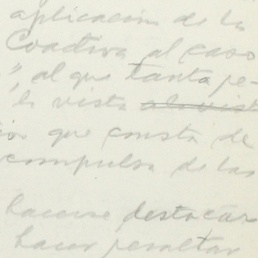 aplicación de la
Coactiva al caso
", al que tanta pe-
le vista
que consta de
compulsa de las
hacerse destacar
hacer resaltar